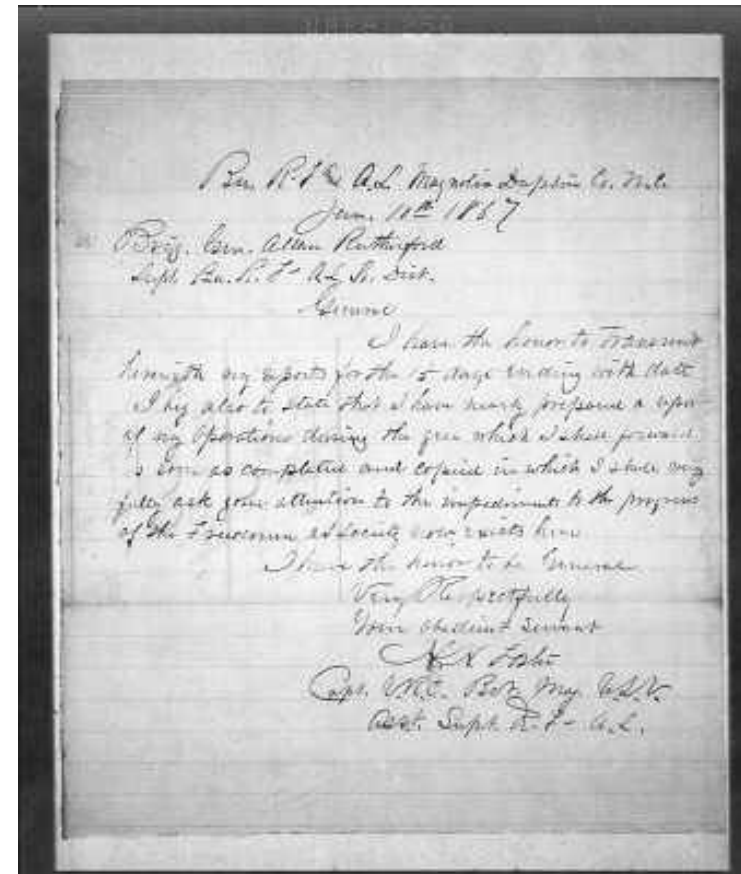 Bu. R. F. & A. L. Magnolia Duplin Co. N.C.
Jan. 10th 1867
Brig. Gen. Allan Rutherford
Supt. Bu. R. F. & A. L. So. Dist.
General
I have the honor to transmit
herewith my reports for the 15 days ending with date
I beg also to state that I have nearly prepared a report
of my operations during the year which I shall forward
as soon as completed and copied in which I shall very
fully ask your attention to the impediments to the progress
of the Freedmen as society now exists here
I have the honor to be General
Very Respectfully
Your obedient servant
H. H. Foster
Capt. V.R.C. Bvt. Maj. U.S.V.
Asst. Supt. R. F. & A. L.